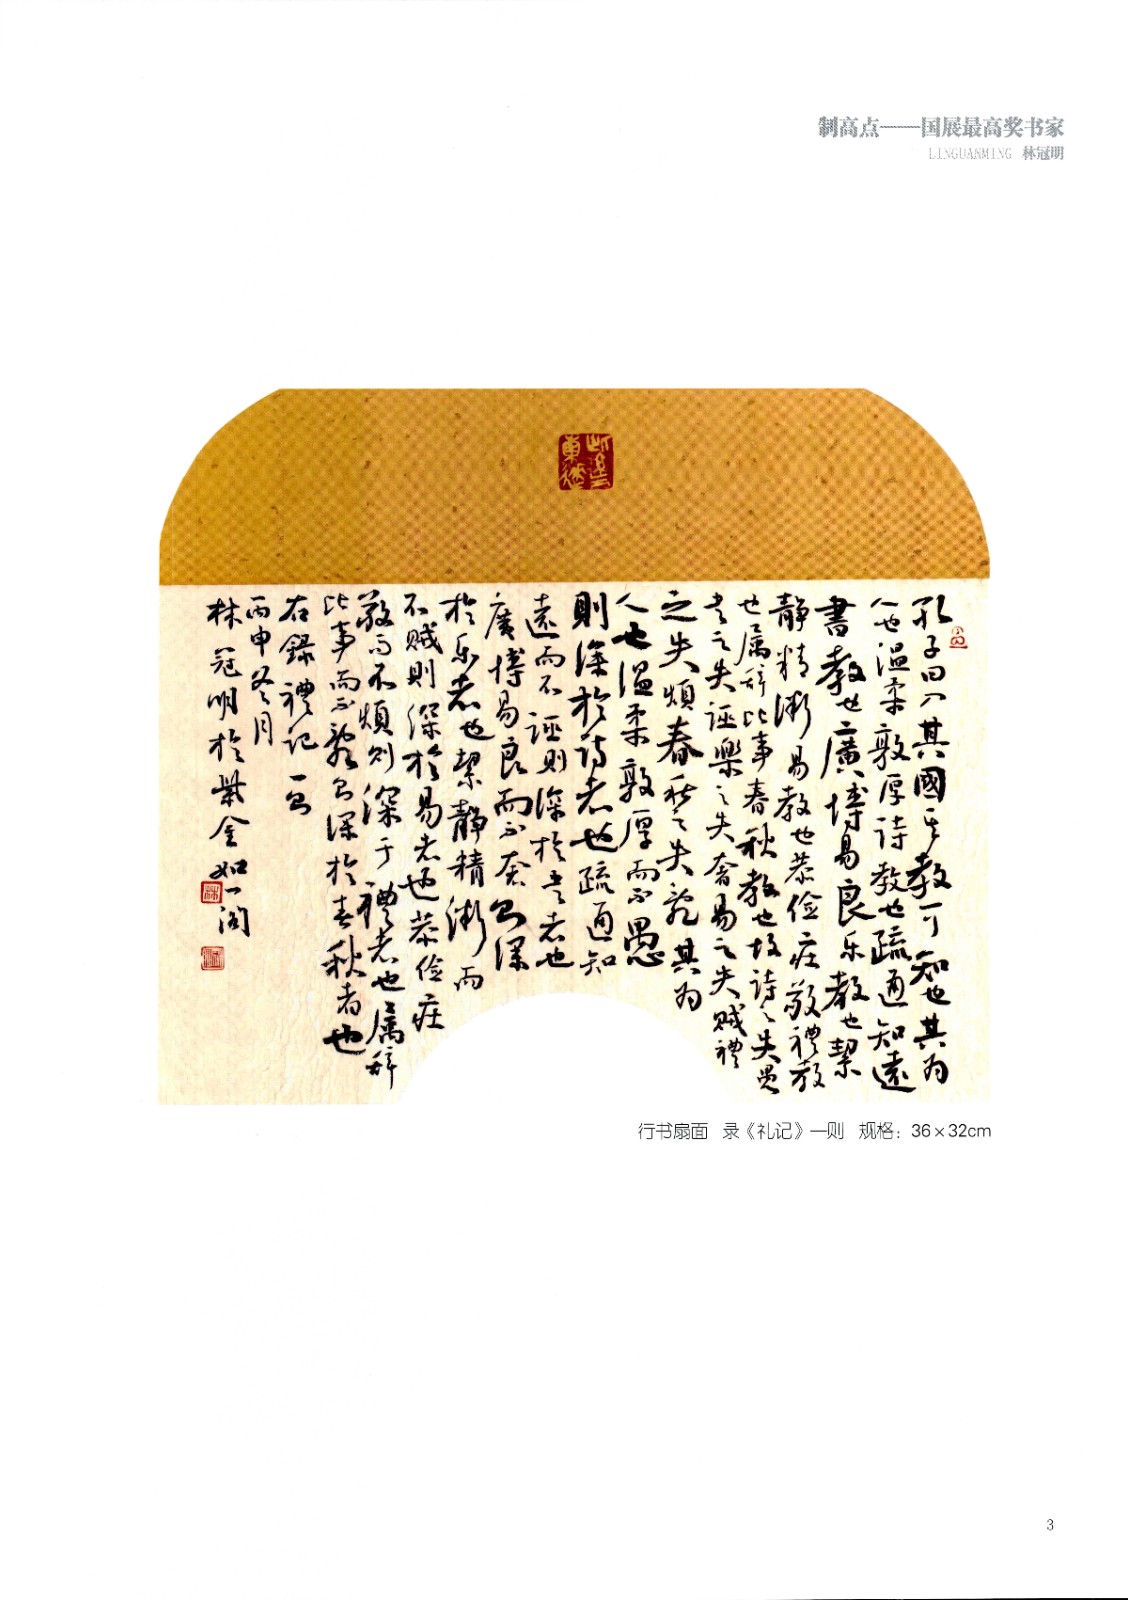 制高点——国展最高奖书家
LINGUANMING 林冠明
孔子曰入其國其教可知也其为
人也温柔敦厚诗教也疏通知遠
書教也廣博易良乐教也絜
静精微易教也恭俭庄敬禮教
也属辞比事春秋教也故诗之失愚
書之失诬樂之失奢易之失贼禮
之失烦春秋之失乱其为
人也温柔敦厚而不愚
則深於诗者也疏通知
遠而不诬则深於書者也
廣博易良而不奢则深
於乐者也絜静精微而
不贼則深於易者也恭俭庄
敬而不煩则深于禮者也属辞
比事而不乱则深於春秋者也
右録禮记一则
丙申冬月
林冠明於紫金如一阁
行书扇面 录《礼记》一则 规格：36×32cm
3